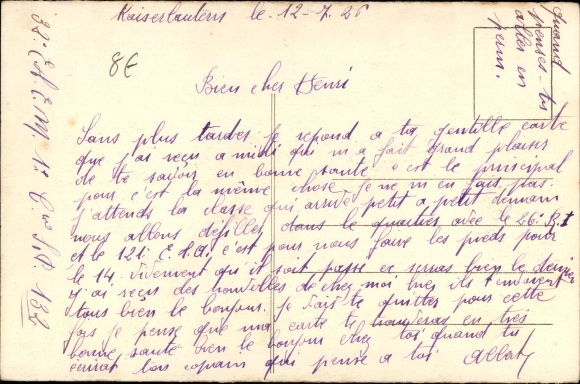 Kaiserlautern le 12-7-26
8€
Quand
penses-tu
aller en
perm.
Bien cher Henri
Sans plus tarder je repond a ta gentille carte
que j'ai reçu a midi qui m'a fait grand plaisir
de te savoir en bonne santé c'est le principal
pour c'est la même chose je ne m'en fais pas.
j'attends la classe qui arrive petit a petit demain
nous allons defiller dans le quartier avec le 26e R.I
et le 121e c'est pour nous faire les pieds pour
le 14. vivement qu'il soit passe ce seras bien le dernier
j'ai reçu des nouvelles de chez moi
tous bien le bonjour. je vais te quitter pour cette
fois je pense que ma carte te trouveras en très
bonne santé bien le bonjour chez toi quand tu
ecriras ton copain qui pense a toi Albert
S.P. 132